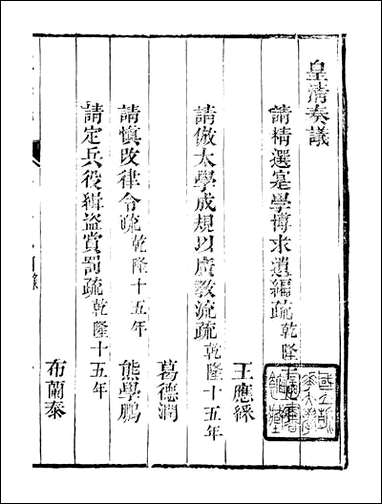 皇清奏議
請精選寔學博求遺編疏乾隆十五年
王應綵
請倣太學成規以廣教流疏乾隆十五年
葛德潤
請慎改律令疏乾隆十五年
熊學鵬
請定兵役緝盜賞罰疏乾隆十五年
布蘭泰